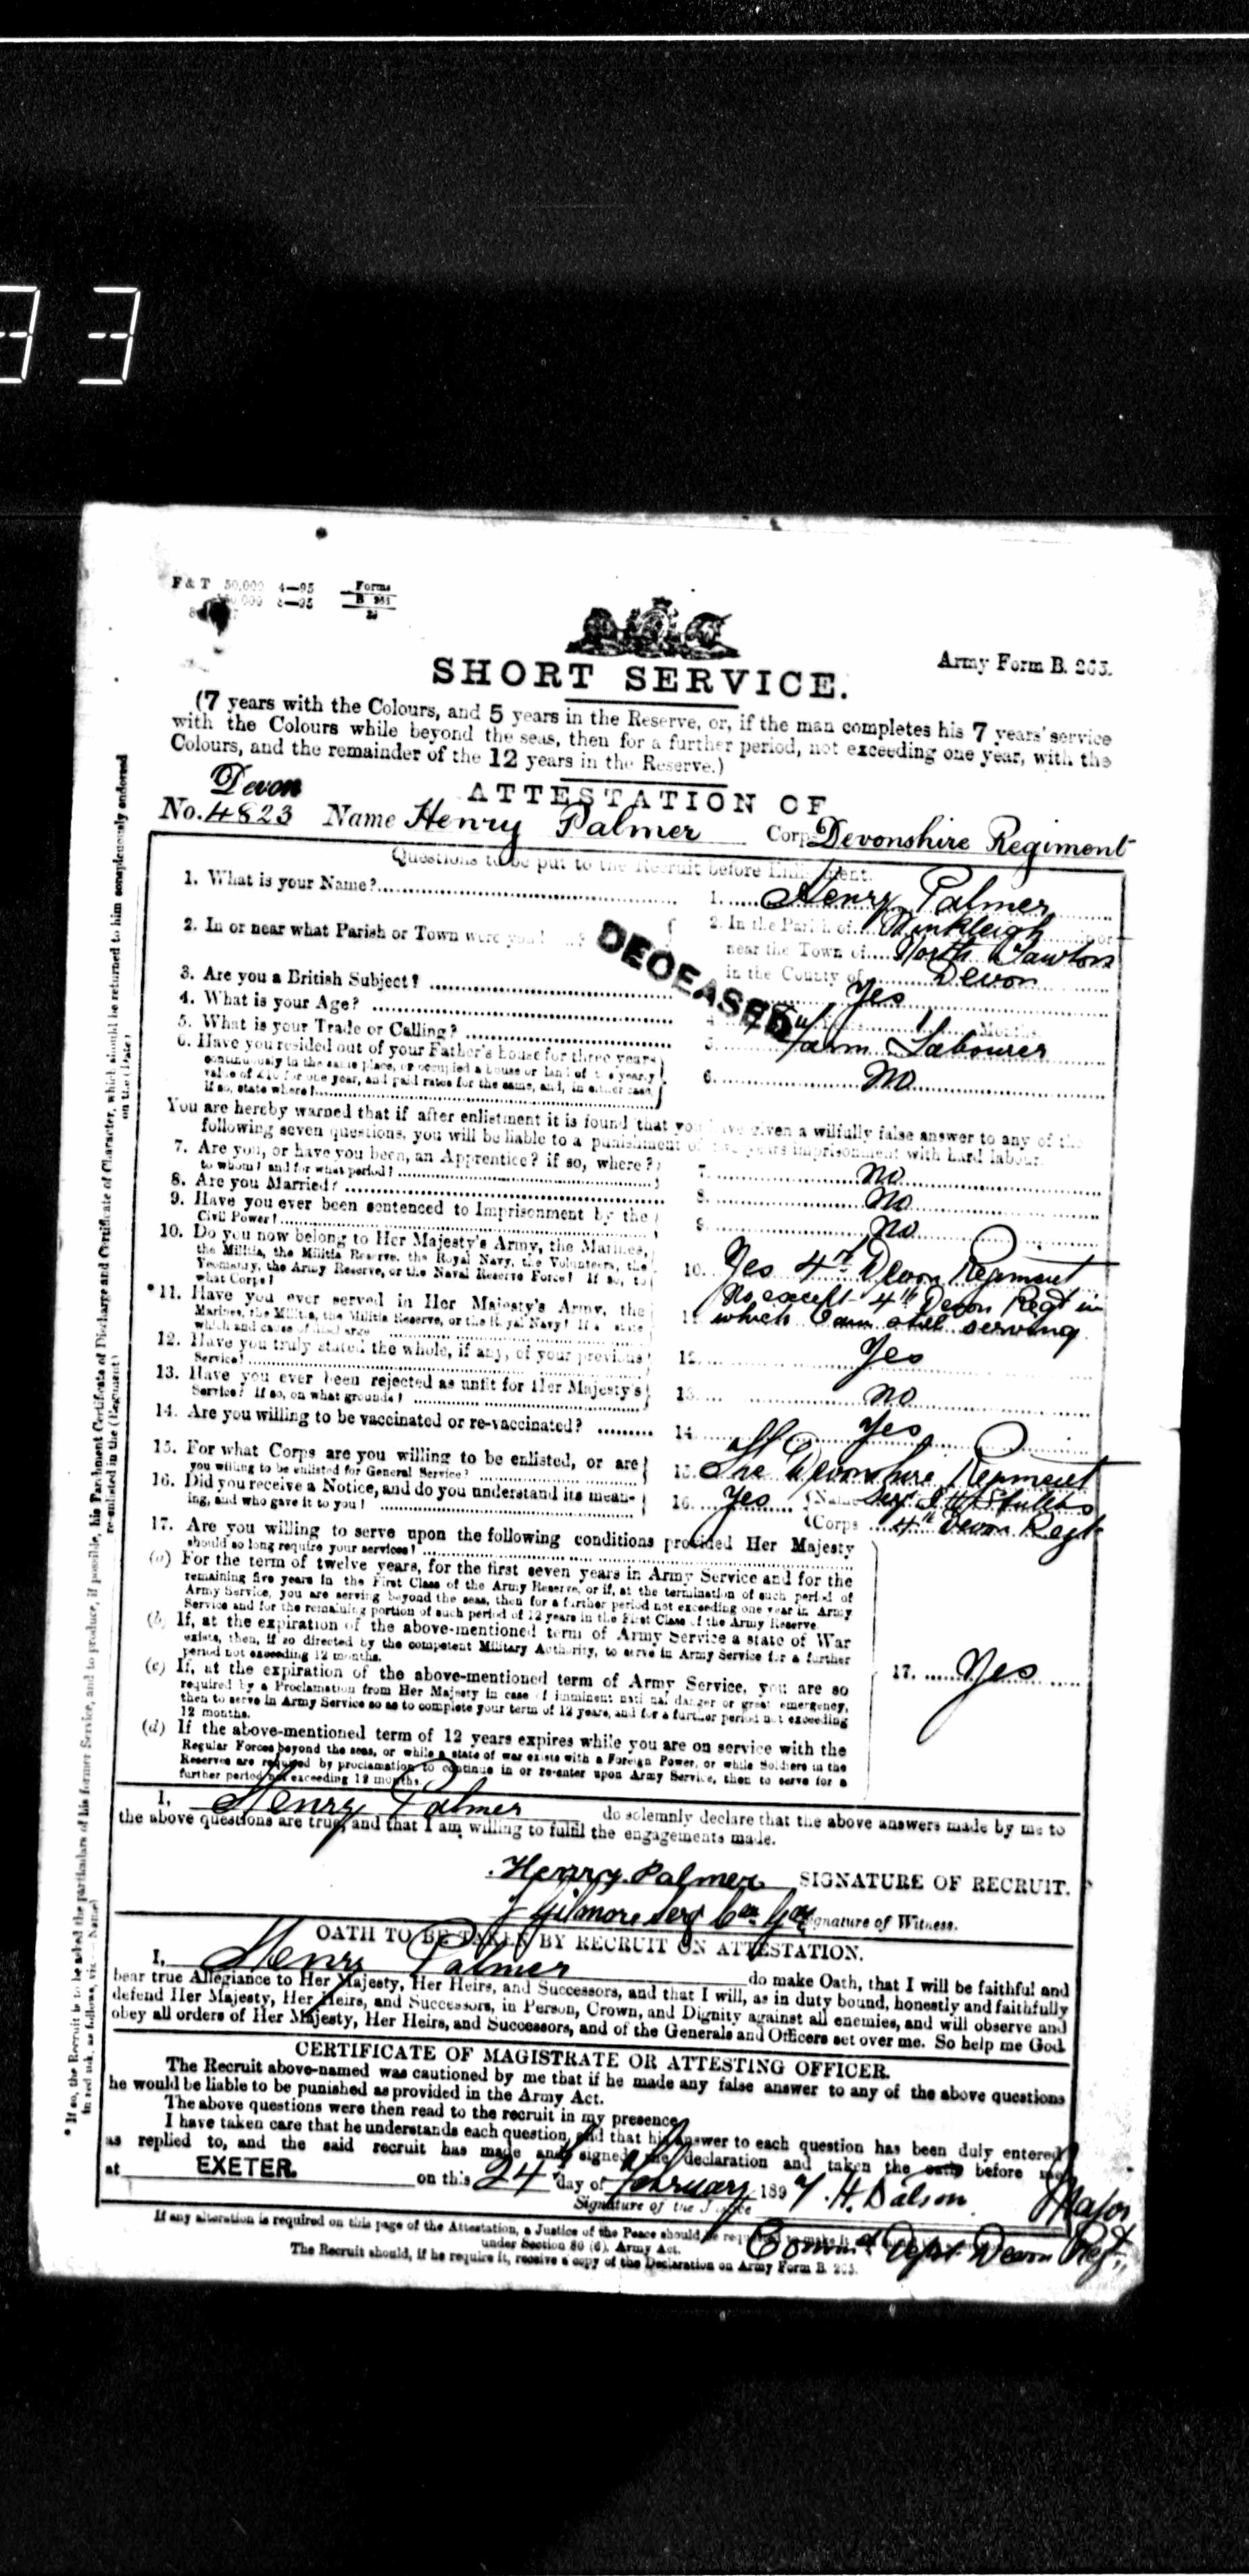 33
F & T 50,000 4—95 Forms
8—95 B 265
Army Form B. 265.
SHORT SERVICE.
(7 years with the Colours, and 5 years in the Reserve, or, if the man completes his 7 years' service
with the Colours while beyond the seas, then for a further period, not exceeding one year, with the
Colours, and the remainder of the 12 years in the Reserve.)
ATTESTATION OF
Devon
No. 4823 Name Henry Palmer Corps Devonshire Regiment
Questions to be put to the Recruit before Enlistment.
1. What is your Name? 1. Henry Palmer
2. In or near what Parish or Town were you 2. In the Parish of Winkleigh
near the Town of North Tawton
in the County of Devon
DECEASED
3. Are you a British Subject? Yes
4. What is your Age? 4. 1 Months
5. What is your Trade or Calling? 5. Farm Labourer
6. Have you resided out of your Father's house for three years
continuously in the same place, or occupied a house or land of the yearly
value of £10 for one year, and paid rates for the same, and, in either case,
if so, state where? 6. No
You are hereby warned that if after enlistment it is found that you have given a wilfully false answer to any of the
following seven questions, you will be liable to a punishment of two years imprisonment with hard labour.
7. Are you, or have you been, an Apprentice? if so, where?
to whom? and for what period? 7. No
8. Are you Married? 8. No
9. Have you ever been sentenced to Imprisonment by the
Civil Power? 9. No
10. Do you now belong to Her Majesty's Army, the Marines,
the Militia, the Militia Reserve, the Royal Navy, the Volunteers, the
Yeomanry, the Army Reserve, or the Naval Reserve Force? If so, to
what Corps? 10. Yes 4th Devon Regiment
*11. Have you ever served in Her Majesty's Army, the
Marines, the Militia, the Militia Reserve, or the Royal Navy? If so state
which and cause of discharge 11. No except 4th Devon Regt in
which I am still serving
12. Have you truly stated the whole, if any, of your previous
Service? 12. Yes
13. Have you ever been rejected as unfit for Her Majesty's
Service? If so, on what grounds? 13. No
14. Are you willing to be vaccinated or re-vaccinated? 14. Yes
15. For what Corps are you willing to be enlisted, or are
you willing to be enlisted for General Service? 15. The Devonshire Regiment
16. Did you receive a Notice, and do you understand its mean-
ing, and who gave it to you? 16. Yes Name Sergt
Corps 4th Devon Regt
17. Are you willing to serve upon the following conditions provided Her Majesty
should so long require your services?
(a) For the term of twelve years, for the first seven years in Army Service and for the
remaining five years in the First Class of the Army Reserve, or if, at the termination of such period of
Army Service, you are serving beyond the seas, then for a further period not exceeding one year in Army
Service and for the remaining portion of such period of 12 years in the First Class of the Army Reserve.
(b) If, at the expiration of the above-mentioned term of Army Service a state of War
exists, then, if so directed by the competent Military Authority, to serve in Army Service for a further
period not exceeding 12 months.
(c) If, at the expiration of the above-mentioned term of Army Service, you are so
required by a Proclamation from Her Majesty in case of imminent national danger or great emergency,
then to serve in Army Service so as to complete your term of 12 years, and for a further period not exceeding
12 months.
17. Yes
(d) If the above-mentioned term of 12 years expires while you are on service with the
Regular Forces beyond the seas, or while a state of war exists with a Foreign Power, or while Soldiers in the
Reserves are required by proclamation to continue in or re-enter upon Army Service, then to serve for a
further period not exceeding 12 months.
I, Henry Palmer do solemnly declare that the above answers made by me to
the above questions are true, and that I am willing to fulfil the engagements made.
Henry Palmer SIGNATURE OF RECRUIT.
J Gilmore Serg Signature of Witness.
OATH TO BE TAKEN BY RECRUIT ON ATTESTATION.
I, Henry Palmer do make Oath, that I will be faithful and
bear true Allegiance to Her Majesty, Her Heirs, and Successors, and that I will, as in duty bound, honestly and faithfully
defend Her Majesty, Her Heirs, and Successors, in Person, Crown, and Dignity against all enemies, and will observe and
obey all orders of Her Majesty, Her Heirs, and Successors, and of the Generals and Officers set over me. So help me God.
CERTIFICATE OF MAGISTRATE OR ATTESTING OFFICER.
The Recruit above-named was cautioned by me that if he made any false answer to any of the above questions
he would be liable to be punished as provided in the Army Act.
The above questions were then read to the recruit in my presence.
I have taken care that he understands each question, and that his answer to each question has been duly entered
as replied to, and the said recruit has made and signed the declaration and taken the oath before me
at EXETER. on this 24th day of February 1897. H. Dalson Major
Signature of the Justice
Comm'd Depot Devon Regt.
If any alteration is required on this page of the Attestation, a Justice of the Peace should be requested to make it
under Section 80 (6), Army Act.
The Recruit should, if he require it, receive a copy of the Declaration on Army Form B. 265.
* If so, the Recruit is to be asked the particulars of his former Service, and to produce, if possible, his Parchment Certificate of Discharge and Certificate of Character, which should be returned to him conspicuously endorsed
in red ink, as follows, viz.— (Name) re-enlisted in the (Regiment) on the (Date)